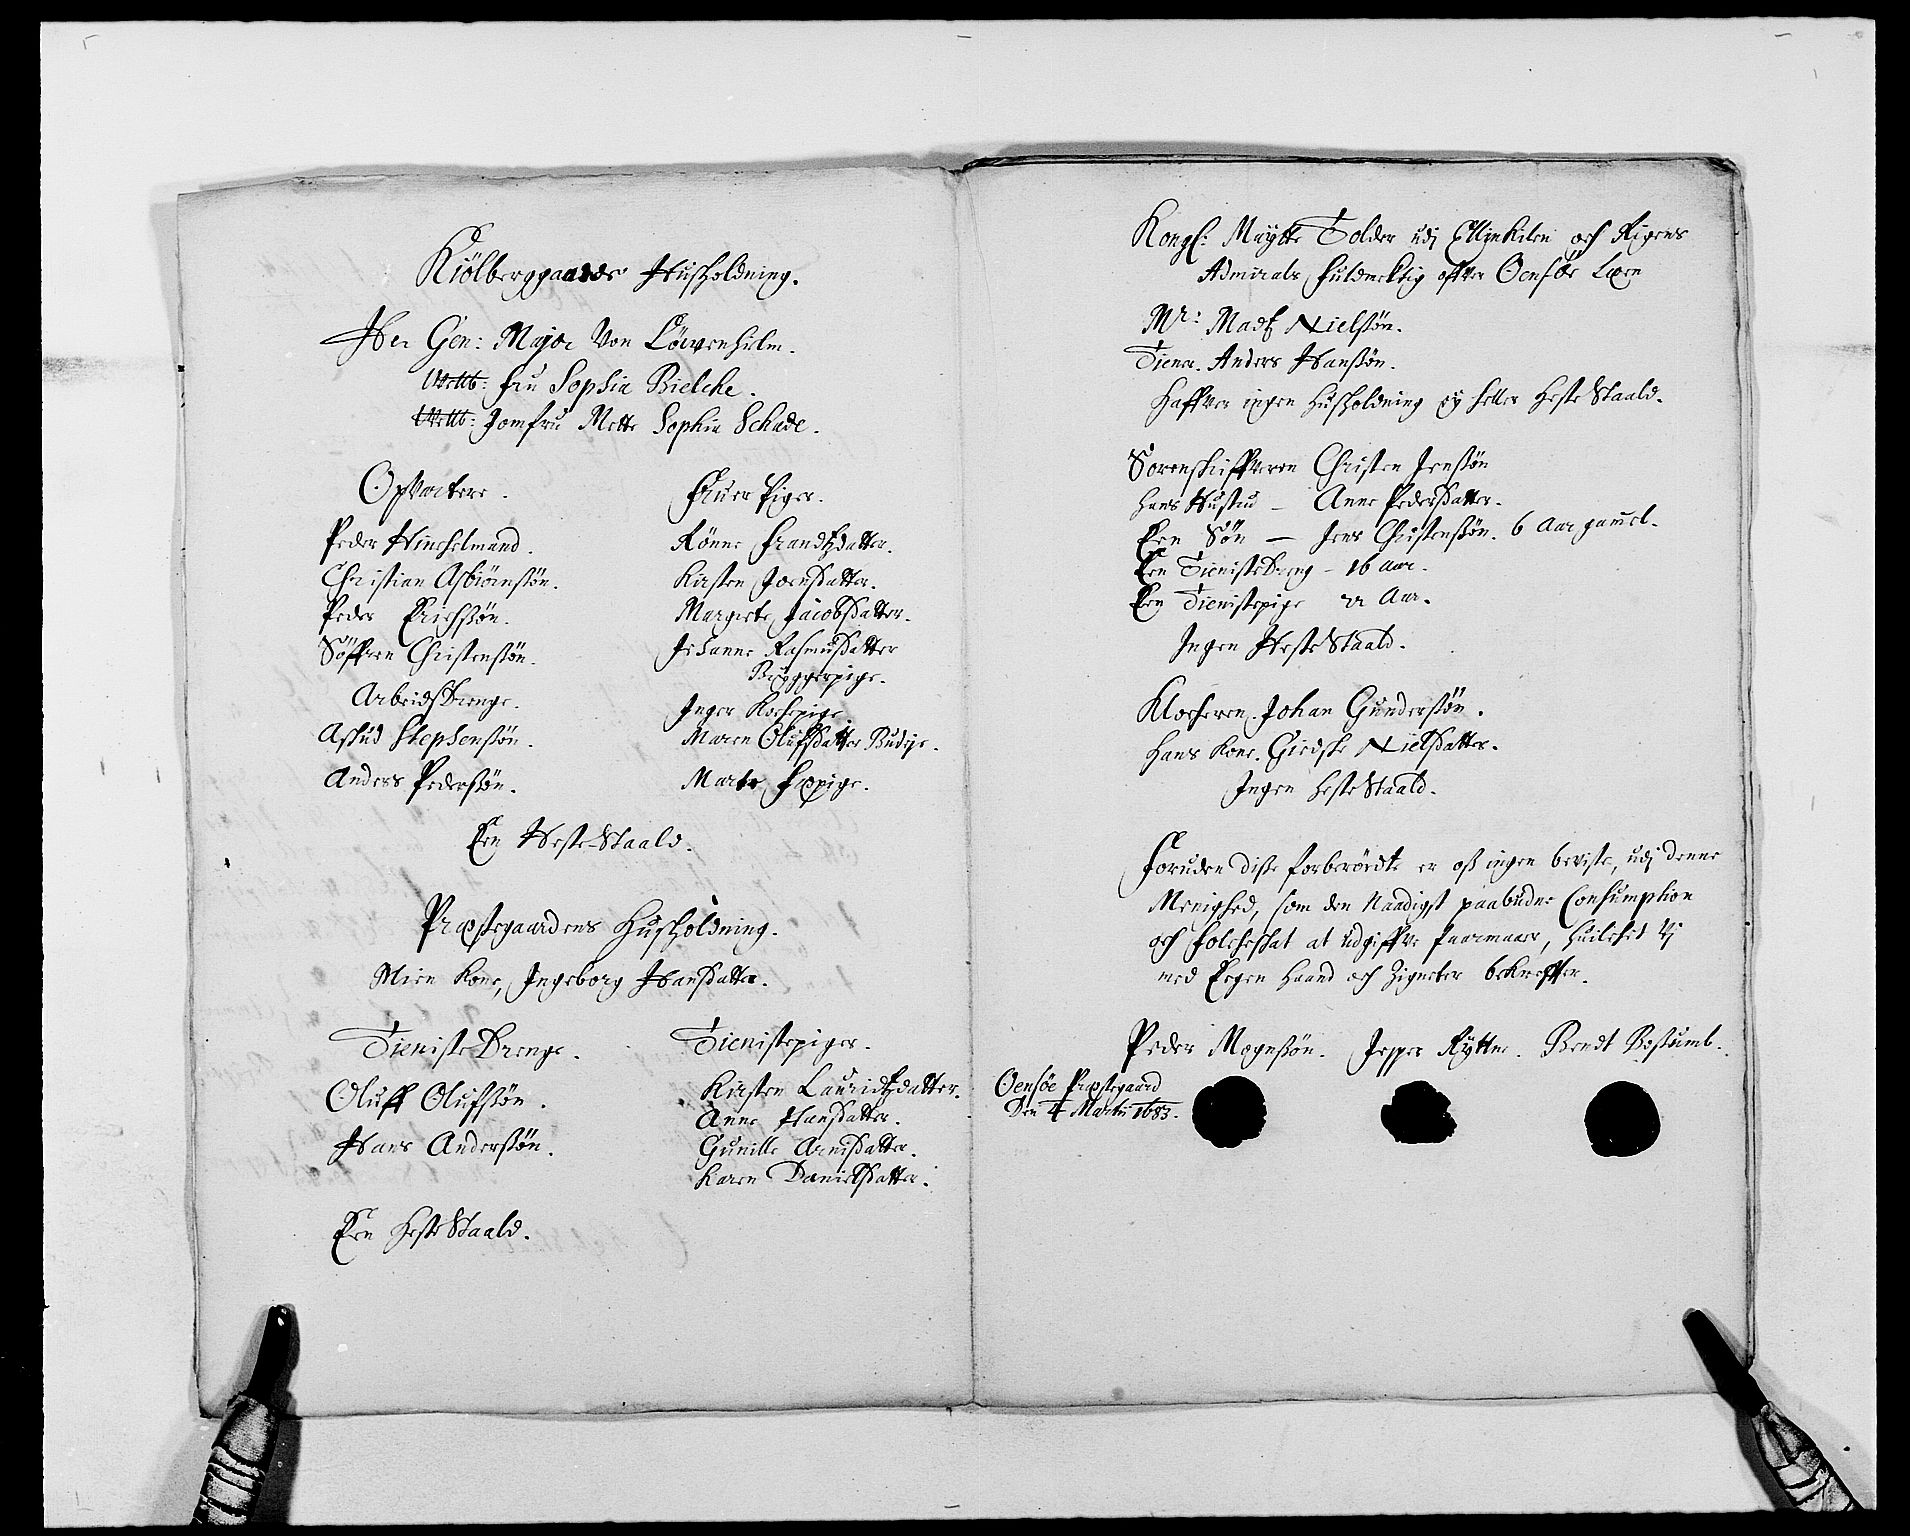 Kiölberggaards Huusholdning.
Her Gen: Major Von Löwenhielm.
Welb: Fru Sophia Bielche.
Welb: Jomfru Mette Sophia Schade.
Opvartere.
Peder Himchelmand.
Christian Asbiörnssön.
Peder Erichssön.
Söffren Christenssön.
Arbeids Drenge.
Aslud Stephenssön.
Anders Pederssön.
Fruer Piger.
Rönne Frandtzdatter.
Kirsten Joensdatter.
Margrete Jacobsdatter.
Johanne Rasmusdatter
Bryggerpige.
Inger Kockepige
Maren Olufsdatter Budeje.
Marte Fæpige.
Een Heste-Staald.
Præstegaardens Huusholdning.
Mien Kone, Ingeborg Hansdatter.
Tieniste Drenge.
Oluff Olufssön.
Hans Anderssön.
Tienistepiger.
Kirsten Lauridtzdatter.
Anne Hansdatter.
Gunille Arnisdatter.
Karen Danielsdatter.
Een Heste Staald.
Kongl: Maytts Tolder udj Ellinkilen och Rigens
Admirals fuldmektig offver Oensöe Læen
Mr: Madtz Nielssön.
Tiener. Anders Hanssön.
Haffver ingen Huusholdning ej heller Heste Staald.
Sorenskriffveren Christen Jenssön
Hans Hustru - Anne Pedersdatter.
Een Sön - Jens Christenssön. 6 Aar gammel.
Een Tieniste Dreng - 16 Aar.
Een Tienistepige 22 Aar.
Ingen Heste Staald.
Klocheren. Johan Gunderssön.
Hans Kone. Giedske Nielsdatter.
Ingen Heste Staald.
Foruden disse forberördte er oss ingen beviste, udj denne
Menighed, som den Naadigst paabudne Consumption
och Folcheskat at udgiffve formaar, huilchet Vj
med Eegen Haand och Zigneter bekreffter.
Peder Mognssön. Jesper Rytter. Bendt Bostumb.
Oensöe Præstegaard
Den 4 Martii 1683.